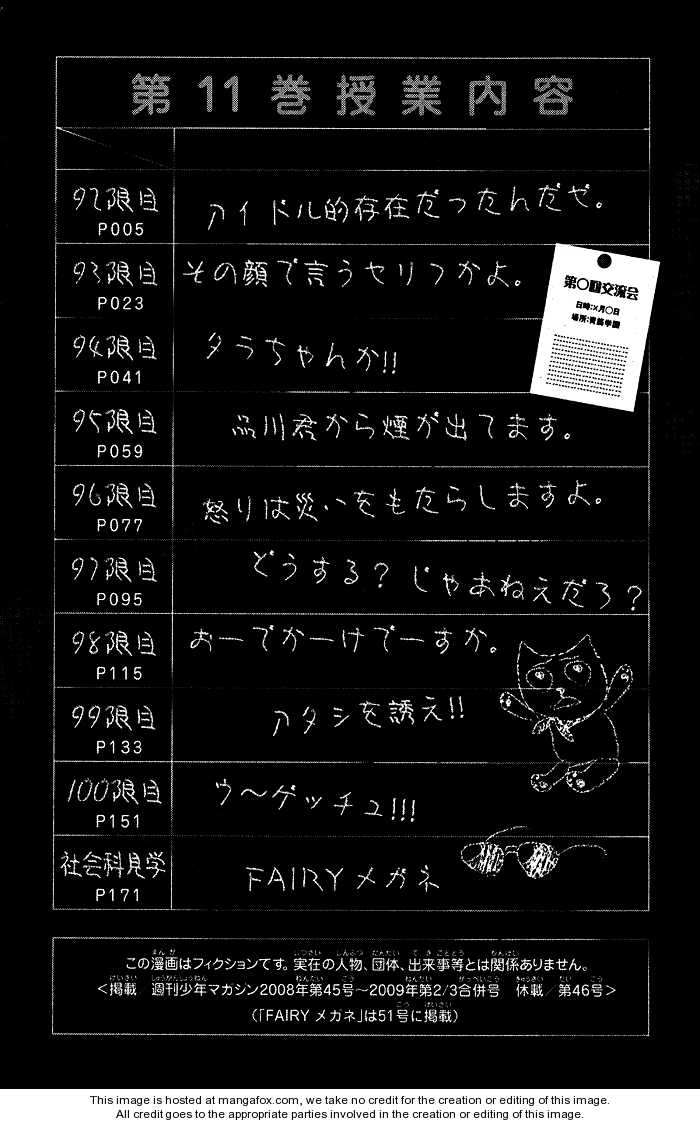 第11巻授業内容
92限目 アイドル的存在だったんだぜ。
P005
93限目 その顔で言うセリフかよ。
P023
第〇回交流会
日時:×月〇日
94限目 タラちゃんか!!
P041
95限目 品川君から煙が出てます。
P059
96限目 怒りは災いをもたらしますよ。
P077
97限目 どうする? じゃあねえだろ?
P095
98限目 おーでかーけでーすか。
P115
99限目 アタシを誘え!!
P133
100限目 ウ〜ゲッチュ!!!
P151
社会科見学 FAIRYメガネ
P171
この漫画はフィクションです。実在の人物、団体、出来事等とは関係ありません。
<掲載/週刊少年マガジン2008年第45号〜2009年第2/3合併号 休載/第46号>
(「FAIRYメガネ」は51号に掲載)
This image is hosted at mangafox.com, we take no credit for the creation or editing of this image.
All credit goes to the appropriate parties involved in the creation or editing of this image.